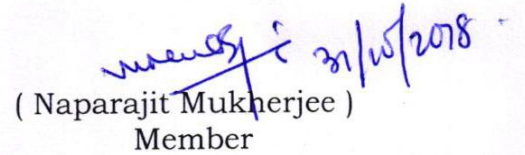 31/10/2018
( Naparajit Mukherjee )
Member